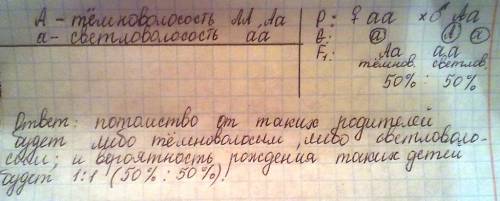 А - тёмноволосость АА, Аа
а - светловолосость аа
Р: ♀ аа × ♂ Аа
G: а А а
F₁: Аа аа
тёмнов. светлов.
50% : 50%
Ответ: потомство от таких родителей
будет либо тёмноволосым, либо светловоло-
сым; и вероятность рождения таких детей
будет 1:1 (50% : 50%).